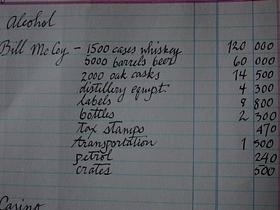 Alcohol
Bill McCoy - 1500 cases whiskey 120 000
5000 barrels beer 60 000
2000 oak casks 14 500
distillery equipt. 4 300
labels 8 800
bottles 2 300
tax stamps 470
transportation 1 500
petrol 240
crates 500
Casino